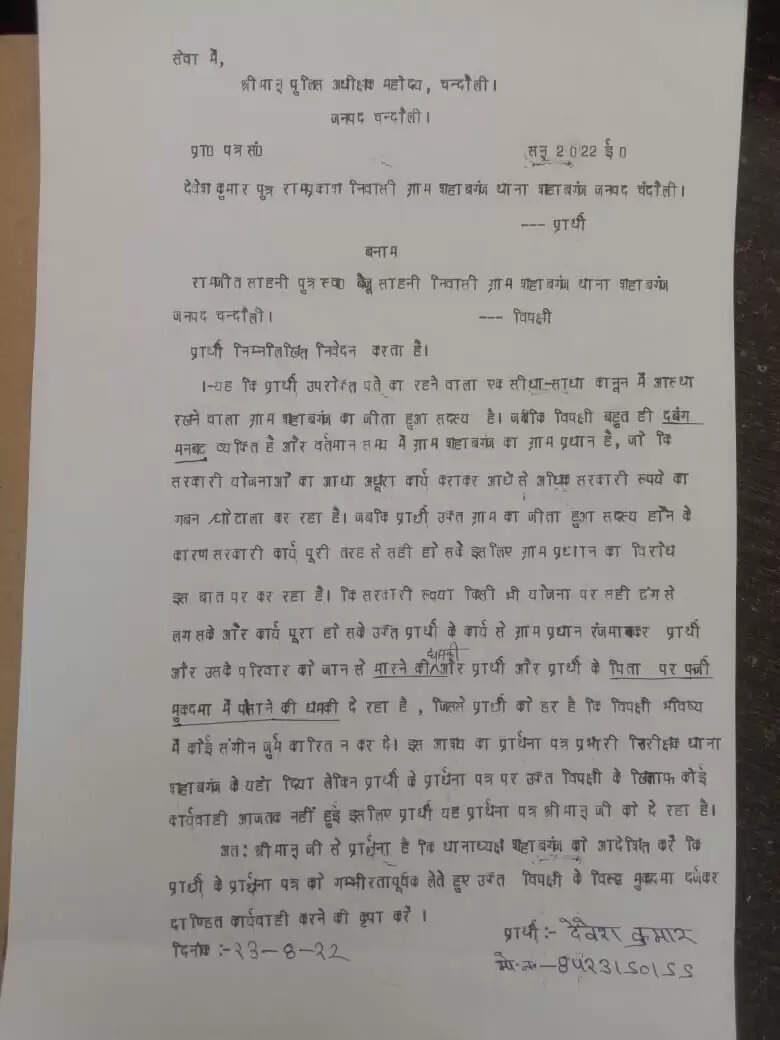 सेवा में,
श्रीमान् पुलिस अधीक्षक महोदय, चन्दौली।
जनपद चन्दौली।
प्रा0 पत्र सं0 सन् 2022 ई0
देवेश कुमार पुत्र रामप्रकाश निवासी ग्राम शहाबगंज थाना शहाबगंज जनपद चंदौली।
--- प्रार्थी
बनाम
रामजीत साहनी पुत्र स्व0 बैजू साहनी निवासी ग्राम शहाबगंज थाना शहाबगंज
जनपद चन्दौली। --- विपक्षी
प्रार्थी निम्नलिखित निवेदन करता है।
1-यह कि प्रार्थी उपरोक्त पते का रहने वाला एक सीधा-साधा कानून में आस्था
रखने वाला ग्राम शहाबगंज का जीता हुआ सदस्य है। जबकि विपक्षी बहुत ही दबंग
मनबढ़ व्यक्ति है और वर्तमान समय में ग्राम शहाबगंज का ग्राम प्रधान है, जो कि
सरकारी योजनाओं का आधा अधूरा कार्य कराकर आधे से अधिक सरकारी रूपये का
गबन /घोटाला कर रहा है। जबकि प्रार्थी उक्त ग्राम का जीता हुआ सदस्य होने के
कारण सरकारी कार्य पूरी तरह से सही हो सके इसलिए ग्राम प्रधान का विरोध
इस बात पर कर रहा है। कि सरकारी रूपया किसी भी योजना पर सही ढंग से
लग सके और कार्य पूरा हो सके उक्त प्रार्थी के कार्य से ग्राम प्रधान रंज मानकर प्रार्थी
और उसके परिवार को जान से मारने की धमकी और प्रार्थी और प्रार्थी के पिता पर फर्जी
मुकदमा में फंसाने की धमकी दे रहा है, जिससे प्रार्थी को डर है कि विपक्षी भविष्य
में कोई संगीन जुर्म कारित न कर दे। इस आशय का प्रार्थना पत्र प्रभारी निरीक्षक थाना
शहाबगंज के यहाँ दिया लेकिन प्रार्थी के प्रार्थना पत्र पर उक्त विपक्षी के खिलाफ कोई
कार्यवाही आजतक नहीं हुई इसलिए प्रार्थी यह प्रार्थना पत्र श्रीमान् जी को दे रहा है।
अतः श्रीमान् जी से प्रार्थना है कि थानाध्यक्ष शहाबगंज को आदेशित करें कि
प्रार्थी के प्रार्थना पत्र को गम्भीरतापूर्वक लेते हुए उक्त विपक्षी के विरूद्ध मुकदमा दर्जकर
दाण्डित कार्यवाही करने की कृपा करें।
दिनांक :-23-8-22 प्रार्थी:- देवेश कुमार
मो.नं-8423150155